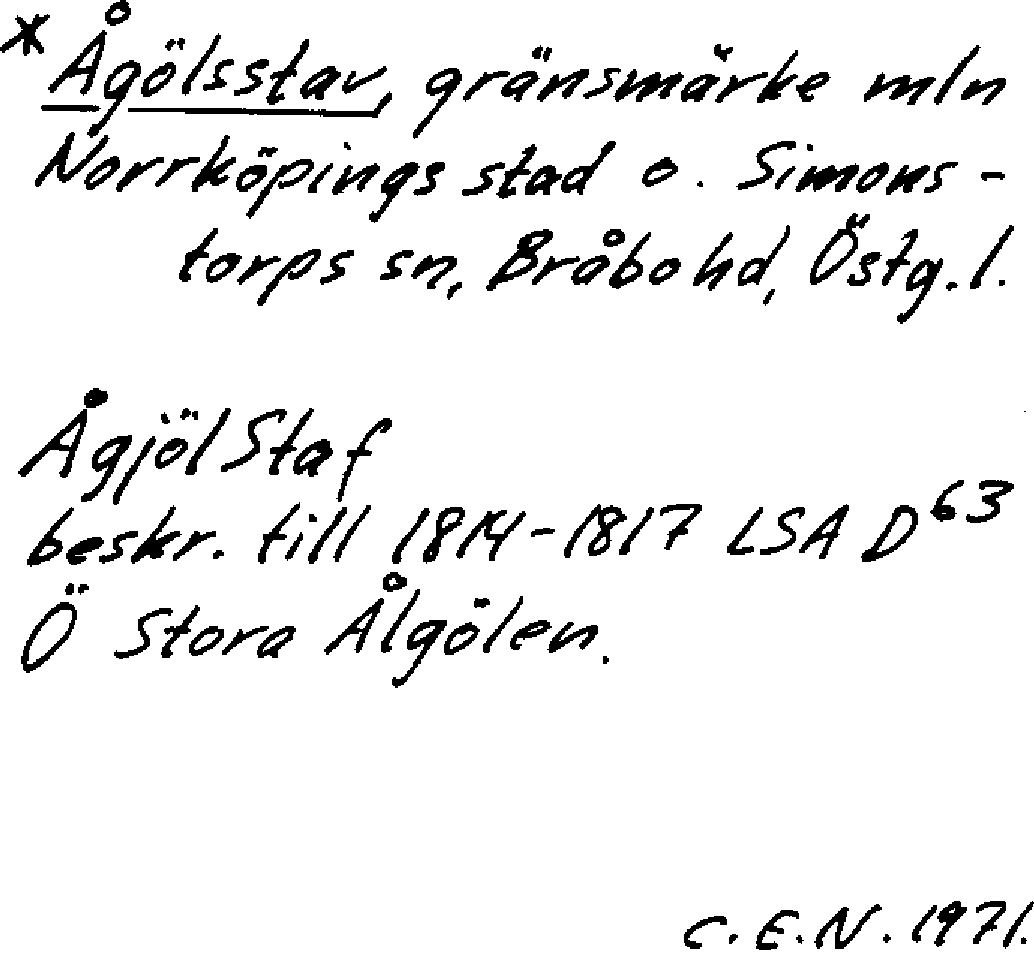 * Ågölsstav, gränsmärke mln
Norrköpings stad o. Simons-
torps sn, Bråbo hd, Östg.l.
Ågjöl Staf
beskr. till 1814-1817 LSA D63
Ö Stora Ålgölen.
C.E.N. 1971.